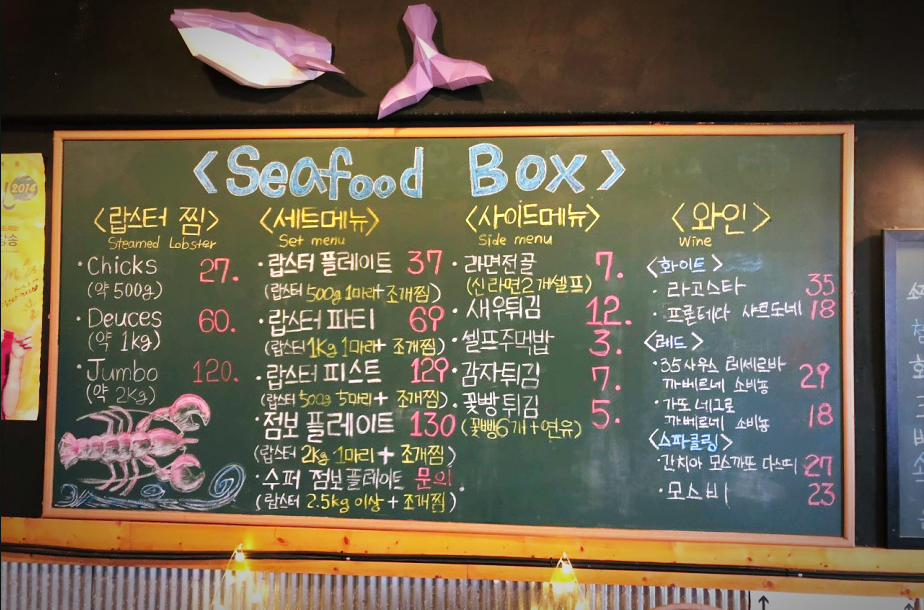 <Seafood Box>
<랍스터 찜>
Steamed Lobster
·Chicks 27.
(약 500g)
·Deuces 60.
(약 1kg)
·Jumbo 120.
(약 2kg)
<세트메뉴>
Set menu
·랍스터 플레이트 37
(랍스터 500g 1마리+조개찜)
·랍스터 파티 69
(랍스터 1kg 1마리+조개찜)
·랍스터 피스트 129
(랍스터 500g 5마리+조개찜)
·점보 플레이트 130
(랍스터 2kg 1마리+조개찜)
·수퍼 점보플레이트 문의.
(랍스터 2.5kg 이상+조개찜)
<사이드메뉴>
Side menu
·라면전골 7.
(신라면2개셀프)
·새우튀김 12.
·셀프주먹밥 3.
·감자튀김 7.
·꽃빵튀김 5.
(꽃빵6개+연유)
<와인>
Wine
<화이트>
·라고스타 35
·프론테다 샤르도네 18
<레드>
·35사우스 레세르바
까베르네 소비뇽 29
·가도 네그로
까베르네 소비뇽 18
<스파클링>
·간치아 모스까또 다스띠 27
·모스비 23
2014